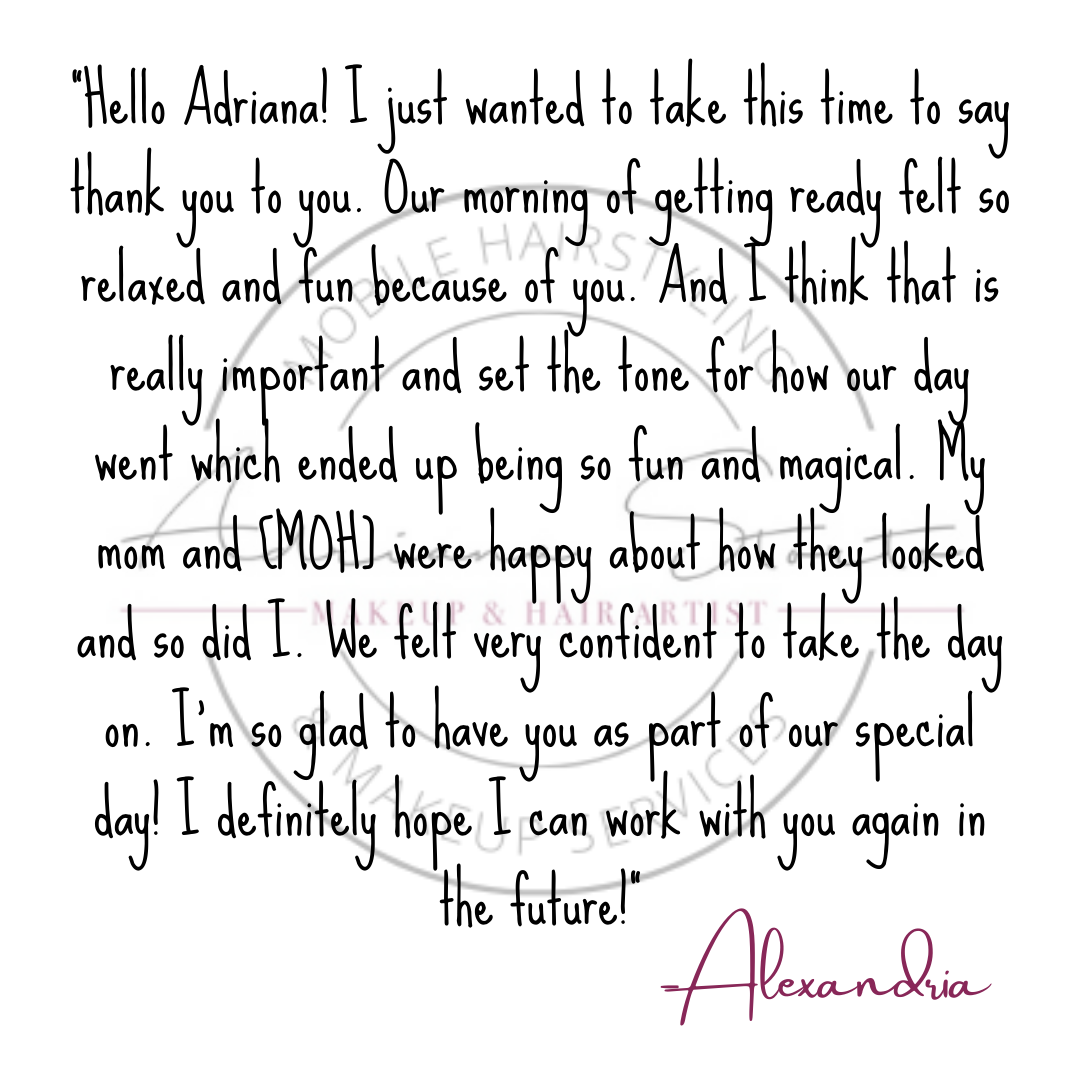 "Hello Adriana! I just wanted to take this time to say
thank you to you. Our morning of getting ready felt so
relaxed and fun because of you. And I think that is
really important and set the tone for how our day
went which ended up being so fun and magical. My
mom and [MOH] were happy about how they looked
and so did I. We felt very confident to take the day
on. I'm so glad to have you as part of our special
day! I definitely hope I can work with you again in
the future!"
Alexandria
MOBILE HAIRSTYLING
MAKEUP & HAIR ARTIST
& MAKEUP SERVICES